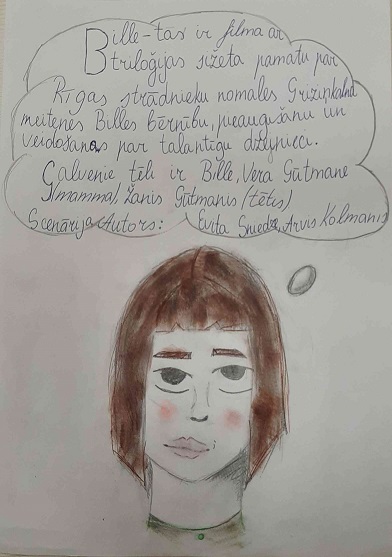 Bille-tas ir filma ar
triloģijas sižeta pamatu par
Rīgas strādnieku nomales Grīziņkalna
meitenes Billes bērnību, pieaugšanu un
veidošanos par talantīgu dzejnieci.
Galvenie tēli ir Bille, Vera Gūtmane
(mamma) Žanis Gūtmanis (tētis)
Scenārija Autors: Evita Sniedze, Arvis Kolmanis